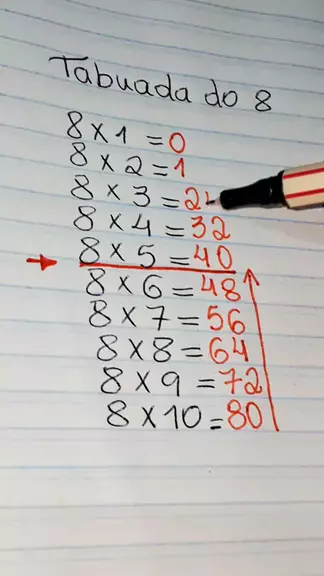 Tabuada do 8
8 x 1 = 0
8 x 2 = 1
8 x 3 = 24
8 x 4 = 32
8 x 5 = 40
8 x 6 = 48
8 x 7 = 56
8 x 8 = 64
8 x 9 = 72
8 x 10 = 80